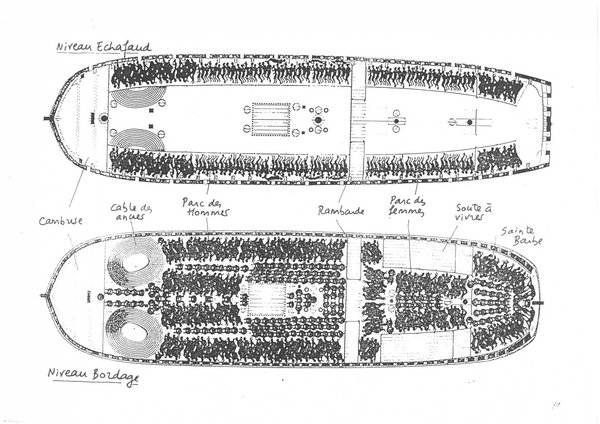 Niveau Echafaud
Cambuse
Cable des
ancres
Parc des
Hommes
Rambarde
Parc des
femmes
Soute à
vivres
Sainte
Barbe
Niveau Bordage